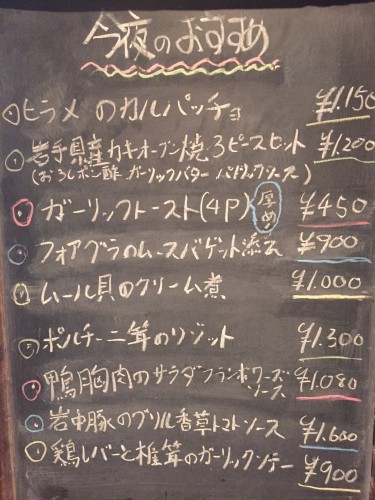 今夜のおすすめ
ヒラメのカルパッチョ ¥1.150
岩手県産カキオーブン焼3ピースセット ¥1.200
(おろしポン酢 ガーリックバター バドックソース)
ガーリックトースト(4P) 厚め! ¥450
フォアグラのムースバゲット添え ¥900
ムール貝のクリーム煮 ¥1.000
ポルチーニ茸のリゾット ¥1.300
鴨胸肉のサラダフランボワーズソース ¥1.080
岩中豚のグリル香草トマトソース ¥1.600
鶏レバーと椎茸のガーリックソテー ¥900